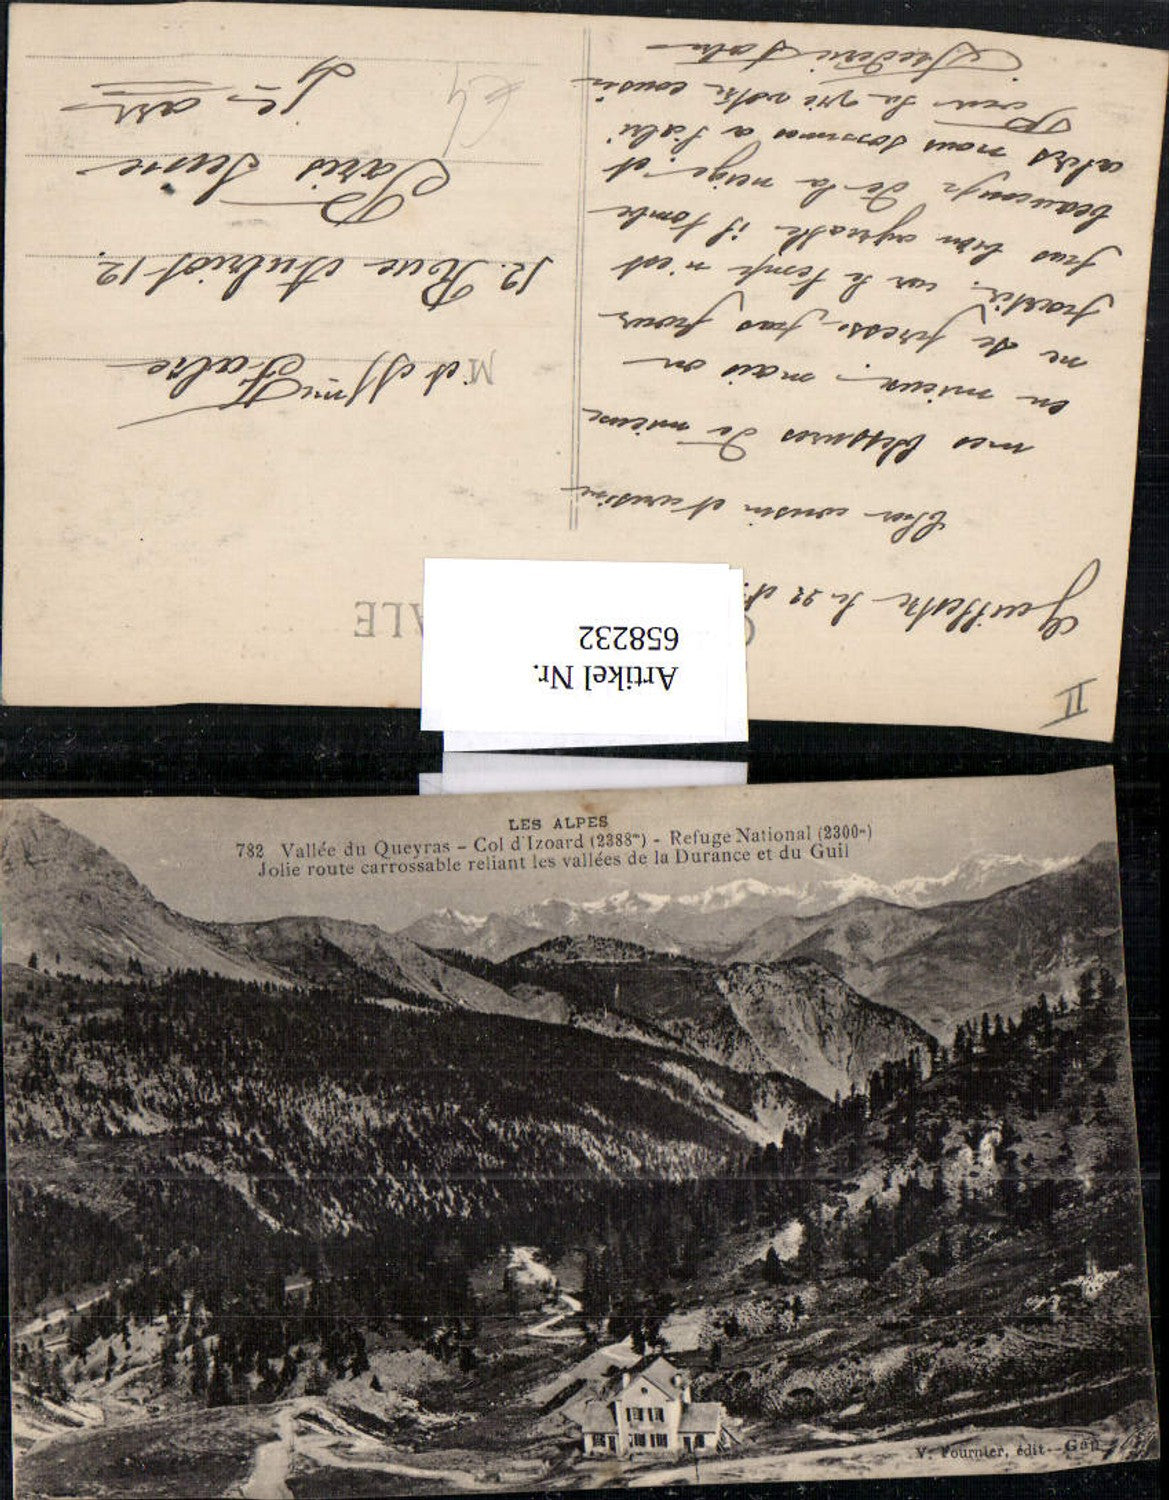 II
Guillestre le 22
Cher cousin et cousine
mes blessures de mieux
en mieux, mais on
ne se presse pas pour
partir, car le temps n'est
pas bien agréable il tombe
beaucoup de la neige, et
alors nous sommes a l'abri
rien de votre cousin
Frédéric Fabre
ALE
Mr et Mme Fabre
12. Rue Aubriot 12.
Paris Seine
Artikel Nr.
658232
LES ALPES
782 Vallée du Queyras - Col d'Izoard (2388m) - Refuge National (2300m)
Jolie route carrossable reliant les vallées de la Durance et du Guil
V. Fournier, édit - Gap